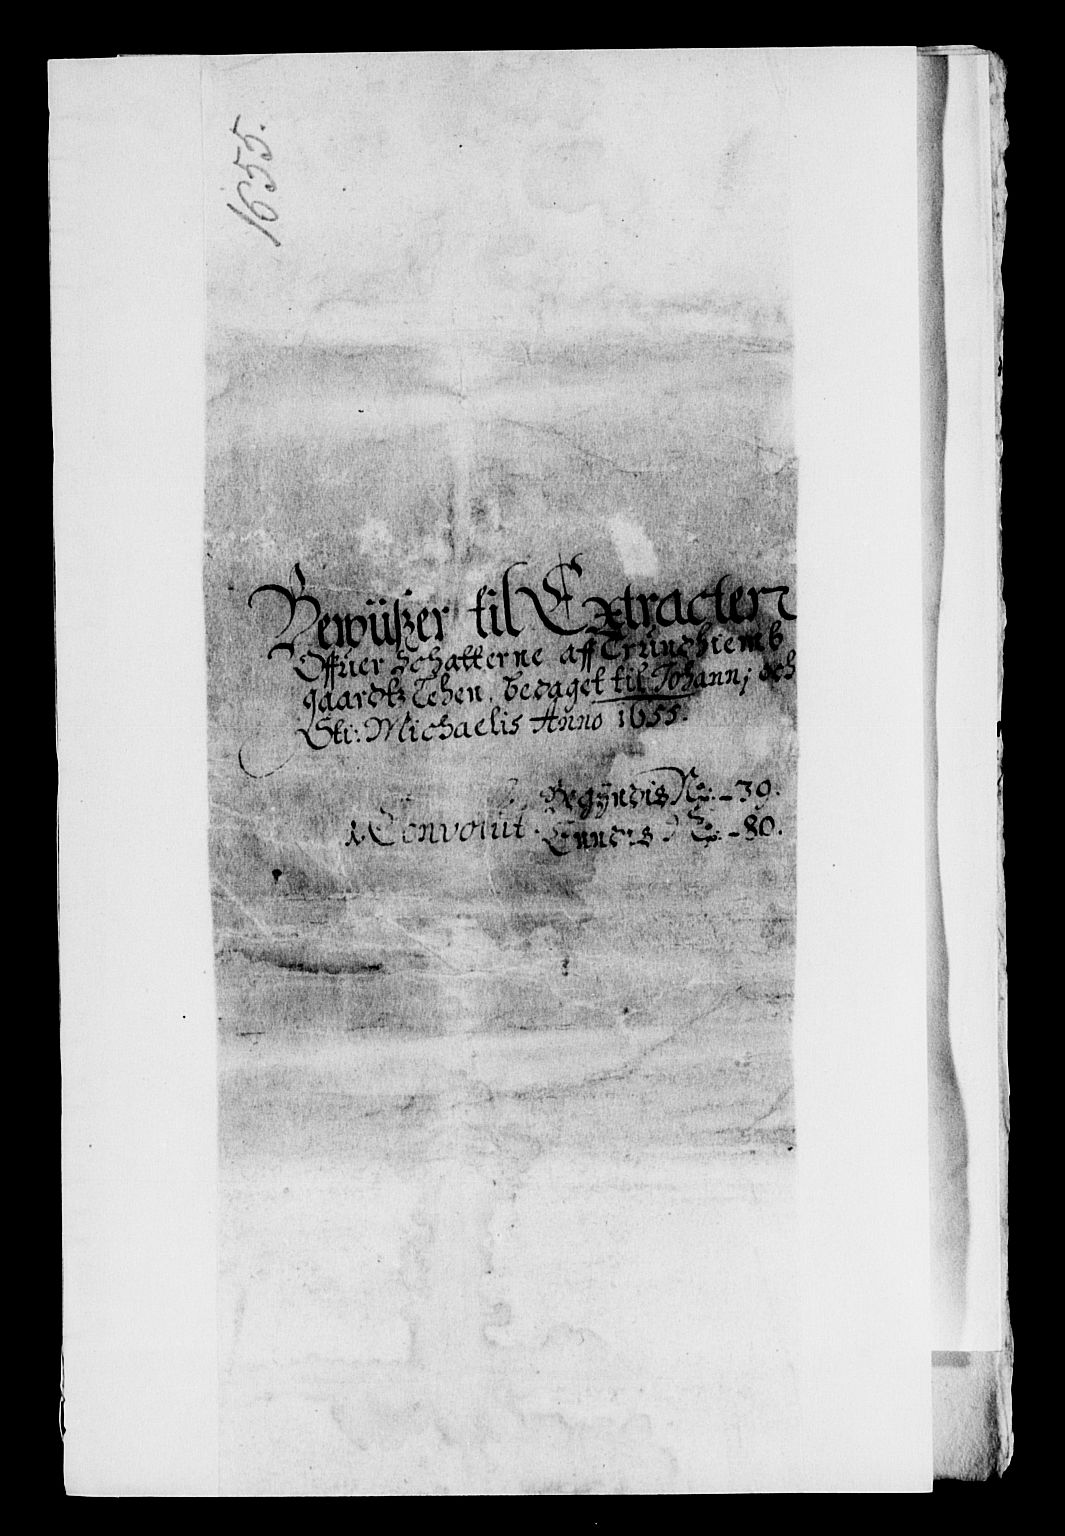 1655.
Bewüszer til Extracten
Offuer Schatterne aff Trundhiembs
gaardtz Lehen, bedaget til Johannj och
Sti: Michaelis Anno 1655.
Begÿndis No: - 39.
1 Convolut. Enndis No: - 80.